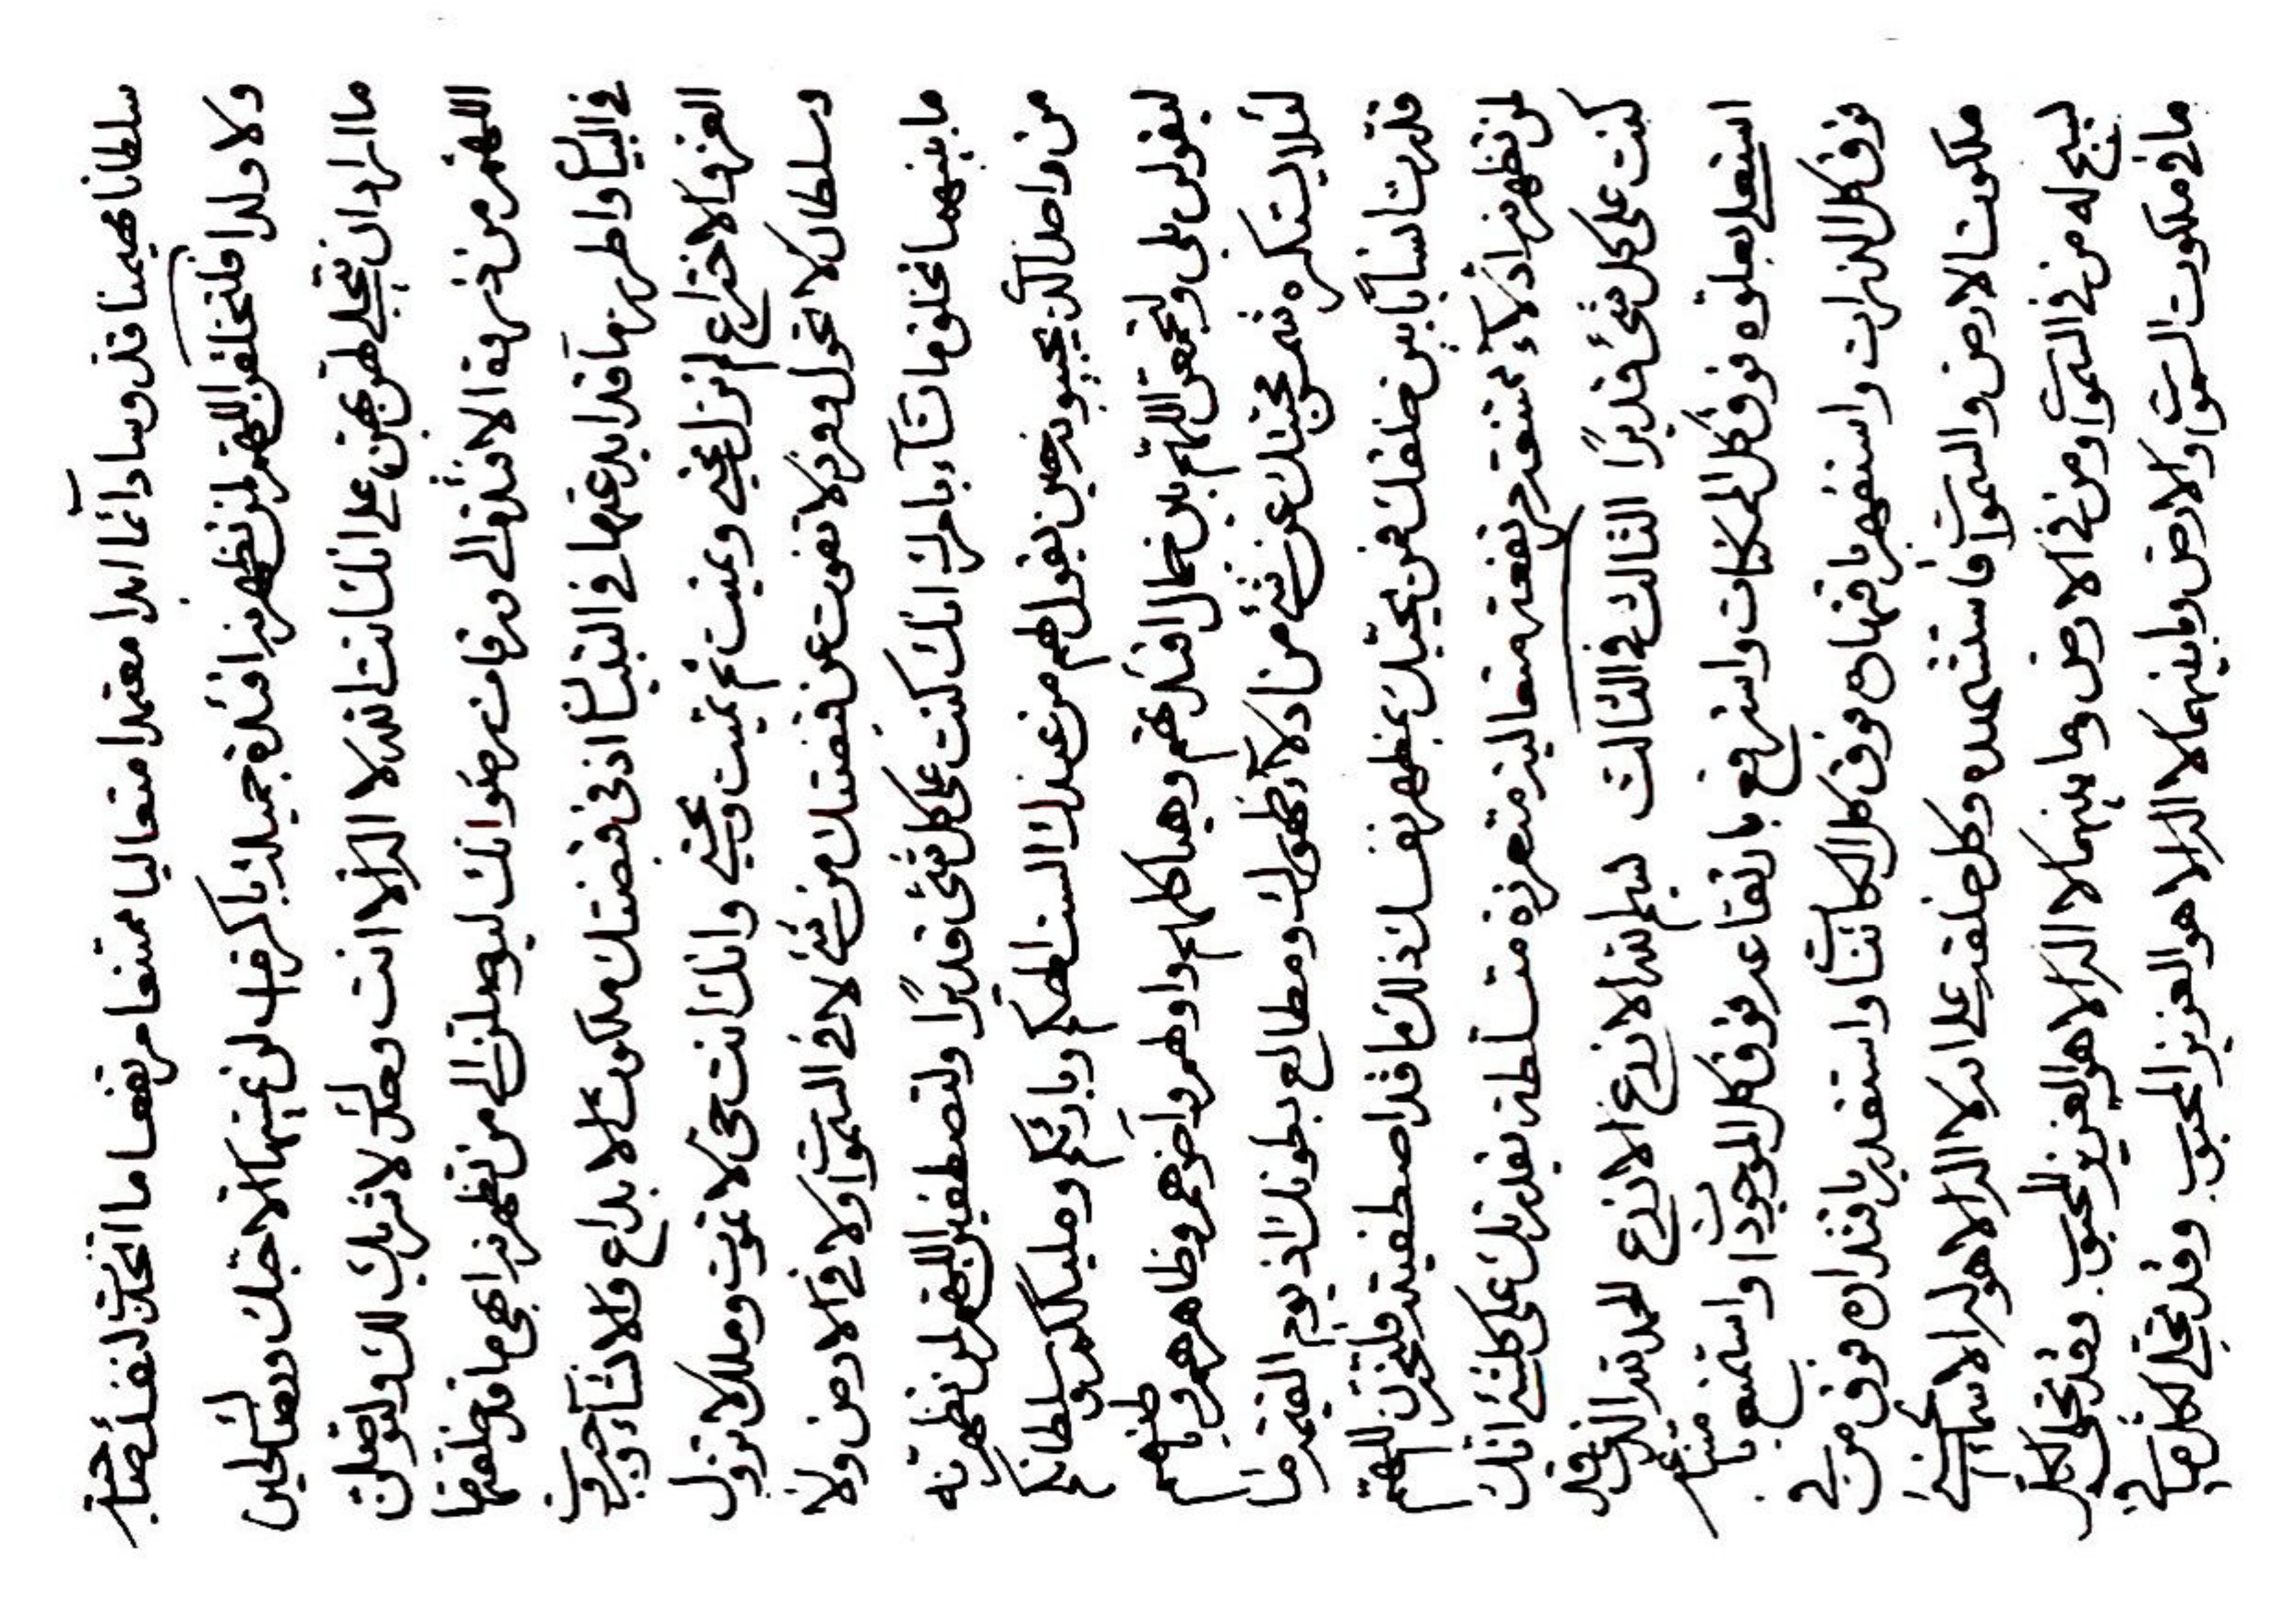 سلطانا مهيمنا قدوسا دائما ابدا معتمدا متعاليا ممتنعا مرتفعا ما اتخذت لنفسك صاحبة
ولا ولدا فلتخلقن اللهم لمن تظهرنه افئدة جميلة لن عنها الا حبك ورضائك لئحين
ما اراد ان تتجلى لهن بهن على انك انت الله لا اله الا انت وحدك لا شريك لك ولتوصلن
اللهم من ذروة الى درجات رضوانك ليوصلن الى من تظهرنه ابهى ما قد خلقتها
في البيان واطرزتها قد ابدعتها في التبيان اذ في قبضتك ملكوت الابداع والانشاء وجبروت
العز والاختراع لم تزل تحيي وتميت ثم تميت وتحيي وانك انت حي لا تموت وملك لا تزول
وسلطان لا تحول وفرد لا تفوت عن قبضتك من شئ لا في السموات ولا في الارض ولا
ما بينهما تخلق ما تشاء بامرك انك كنت على كل شئ قديرا ولتصطفين اللهم لمن تظهرنه
من واصل الذين يجيبونه حين يقول لهم من عندك الست الهكم وبارئكم ومليككم وسلطانكم
ليقولن بلى ولتجمعن اللهم بين جمال افئدتهم وهياكلهم واولهم واخرهم وظاهرهم وباطنهم
لئلا يستكره شمس محبتك عن شئ من ادلاء ظهورك ومطالع بطونك اذ يوم القيمة ما
قدرت انسانا بين خلقك فمن يحبك بمظهر نفسك ذلك ما قد اصطفيته فلتخزن اللهم
لمن تظهرنه ادلاء ممتنعة مرتفعة متعالية متعززة متسلطة بقدرتك على كل شئ انك
كنت على كل شئ قديرا الثالث في الثالث بسم الله الازرع الازرع الحمد لله الذي قد
استعلى بعلوه فوق كل الممكنات واسترفع بارتفاعه فوق كل الموجودات واستمنع بامتناعه
فوق كل الذرات واستقهر باقتهاره فوق كل الكائنات واستقدر باقتداره فوق من في
ملكوت الارض والسموات فاستشهده وكل خلقه على انه لا اله الا هو له الاسماء الحسنى
يسبح له من في السموات ومن في الارض وما بينهما لا اله الا هو العزيز المحبوب وقد تجلى لكل
ما في ملكوت السموات والارض وما بينهما لا اله الا هو العزيز المحبوب وقد تجلى لكل من في